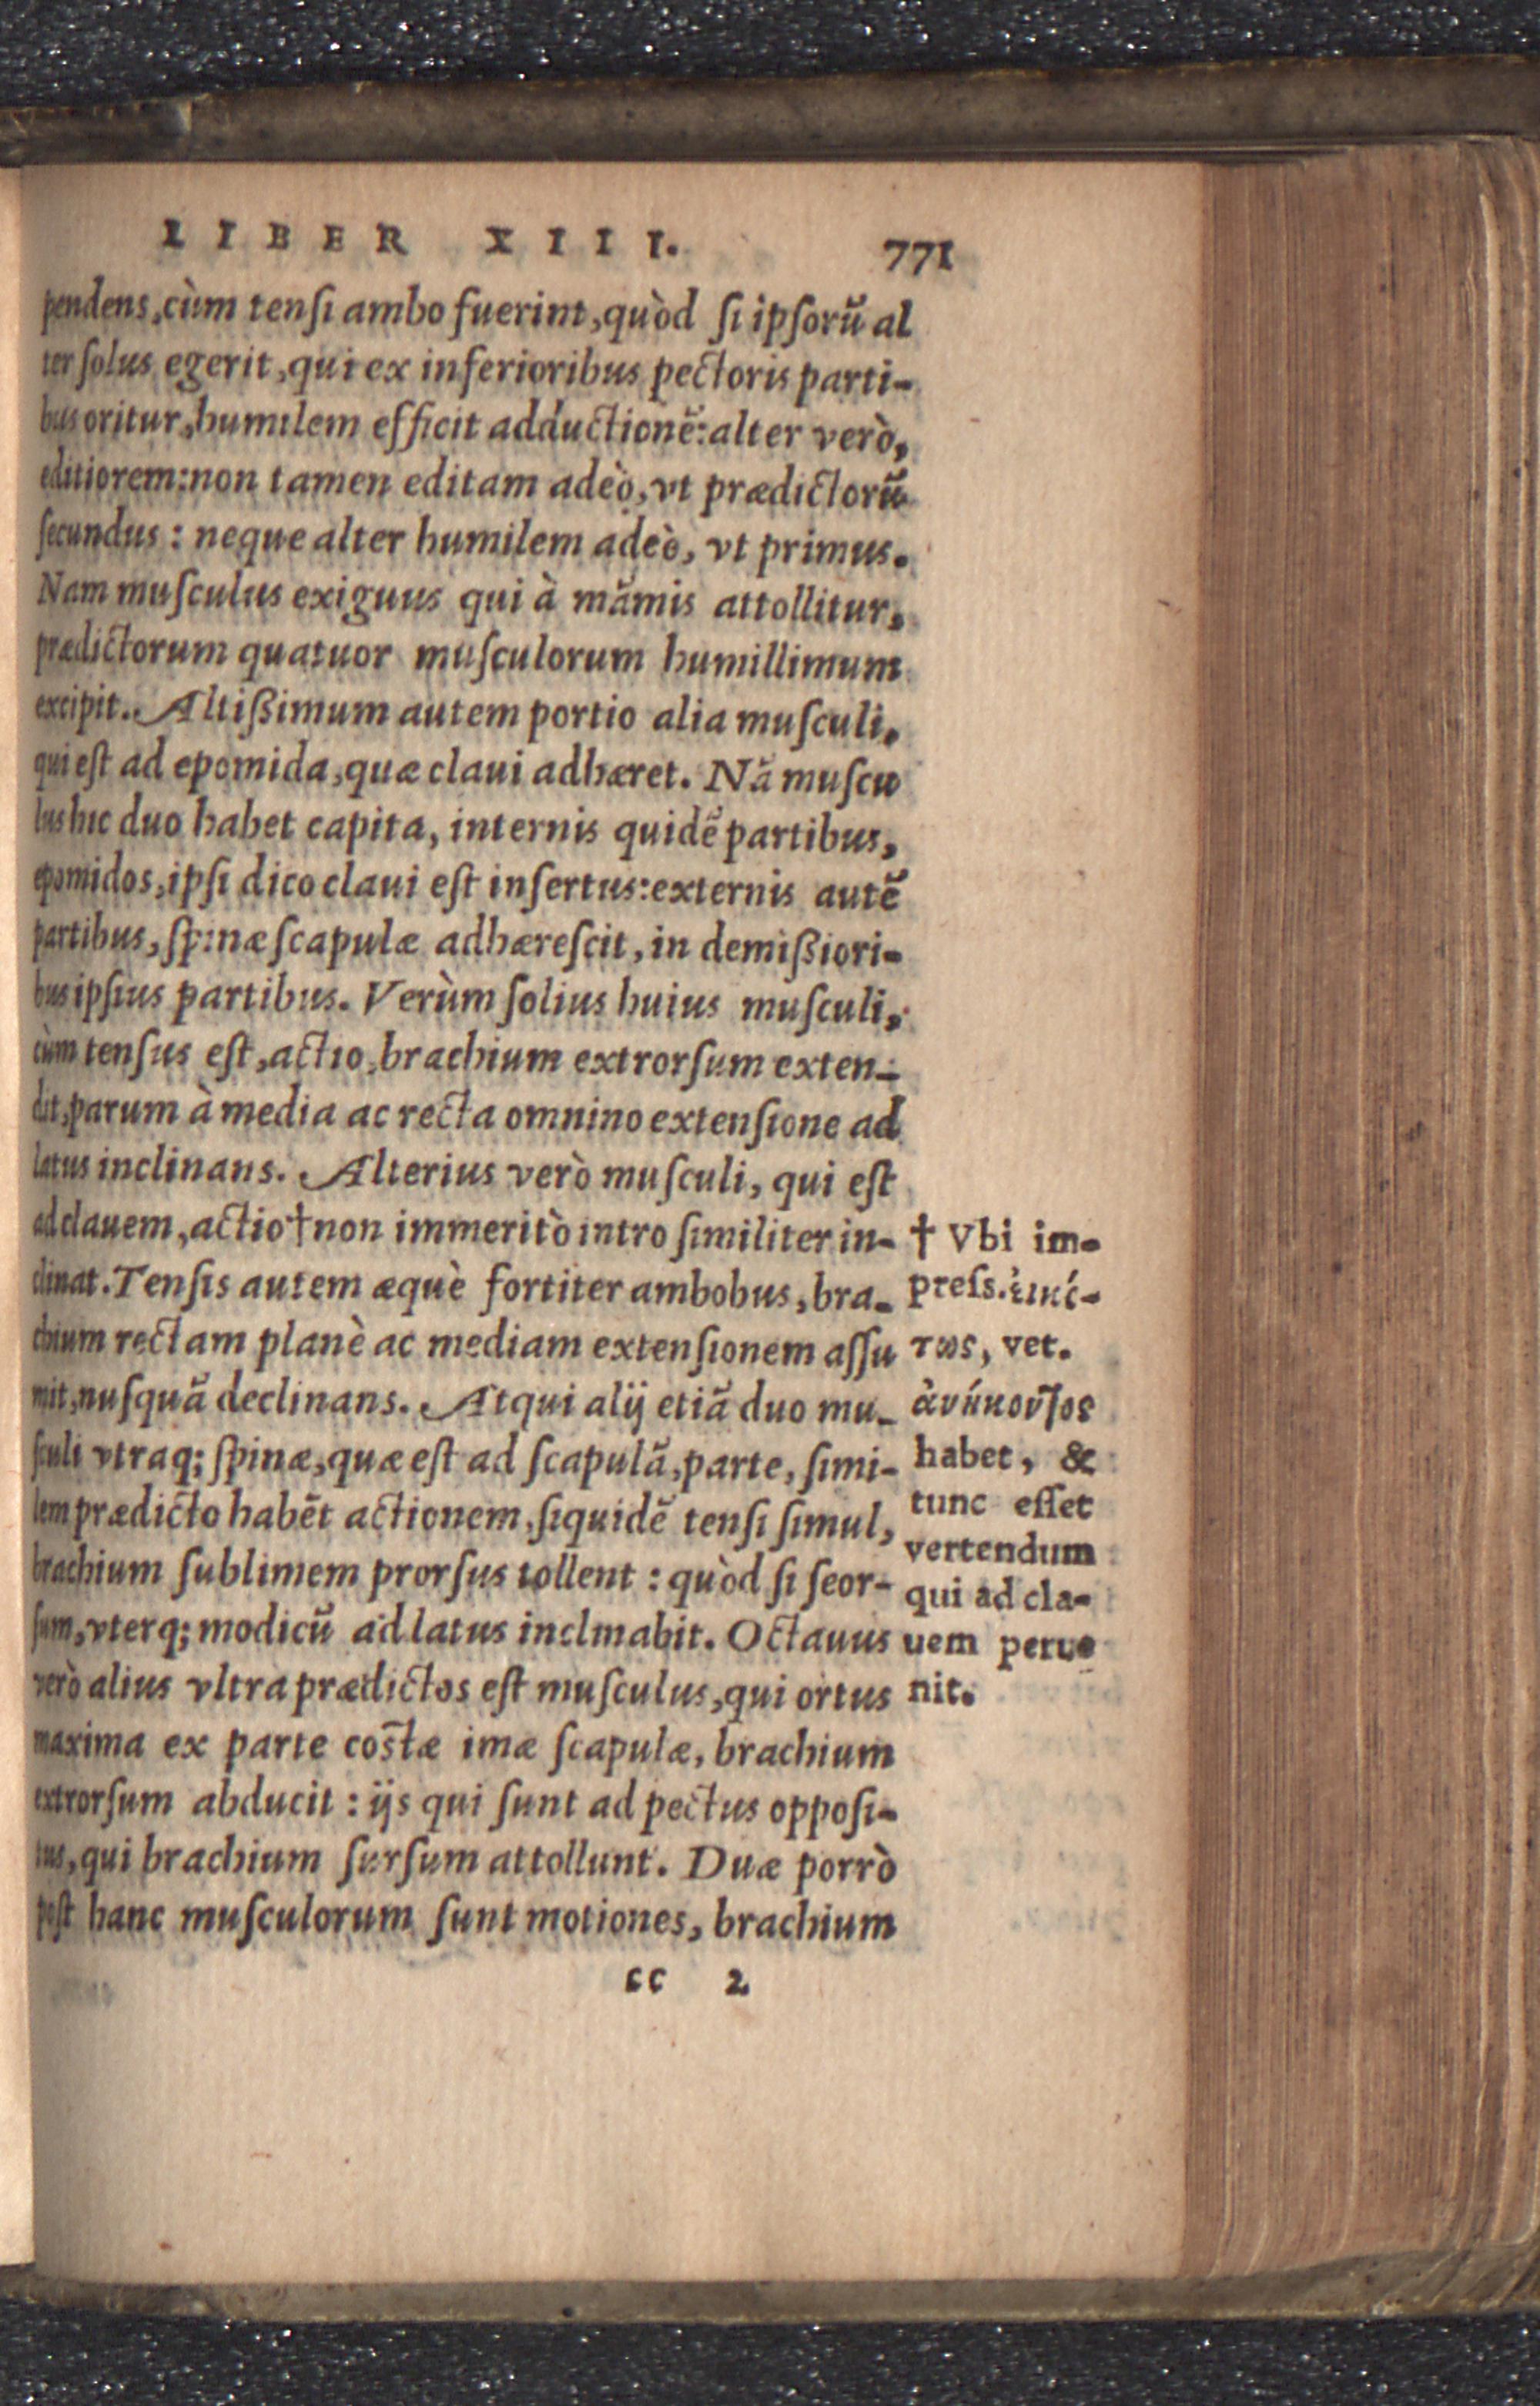 LIBER XIII. 771
pendens, cùm tensi ambo fuerint, quòd si ipsorũ al
ter solus egerit, qui ex inferioribus pectoris parti-
bus oritur, humilem efficit adductionẽ: alter verò,
editiorem: non tamen editam adeò, vt prædictorũ
secundus: neque alter humilem adeò, vt primus.
Nam musculus exiguus qui à mãmis attollitur,
prædictorum quatuor musculorum humillimum
excipit. Altißimum autem portio alia musculi,
qui est ad epomida, quæ claui adhæret. Nã muscu
lus hic duo habet capita, internis quidẽ partibus,
epomidos, ipsi dico claui est insertus: externis autẽ
partibus, spinæ scapulæ adhærescit, in demißiori-
bus ipsius partibus. Verùm solius huius musculi,
cùm tensus est, actio, brachium extrorsum exten-
dit, parum à media ac recta omnino extensione ad
latus inclinans. Alterius verò musculi, qui est
ad clauem, actio † non immeritò intro similiter in-
clinat. Tensis autem æquè fortiter ambobus, bra-
chium rectam planè ac mediam extensionem assu
mit, nusquã declinans. Atqui alij etiã duo mu-
sculi vtraq; spinæ, quæ est ad scapulã, parte, simi-
lem prædicto habẽt actionem, siquidẽ tensi simul,
brachium sublimem prorsus tollent: quòd si seor-
sum, vterq; modicũ ad latus inclinabit. Octauus
verò alius vltra prædictos est musculus, qui ortus
maxima ex parte costæ imæ scapulæ, brachium
extrorsum abducit: ijs qui sunt ad pectus opposi-
tus, qui brachium sursum attollunt. Duæ porrò
post hanc musculorum sunt motiones, brachium
cc 2
† Vbi im-
press. εἰκό-
τως, vet.
ἀνήκοντος
habet, &
tunc esset
vertendum
qui ad cla-
uem perue
nit.